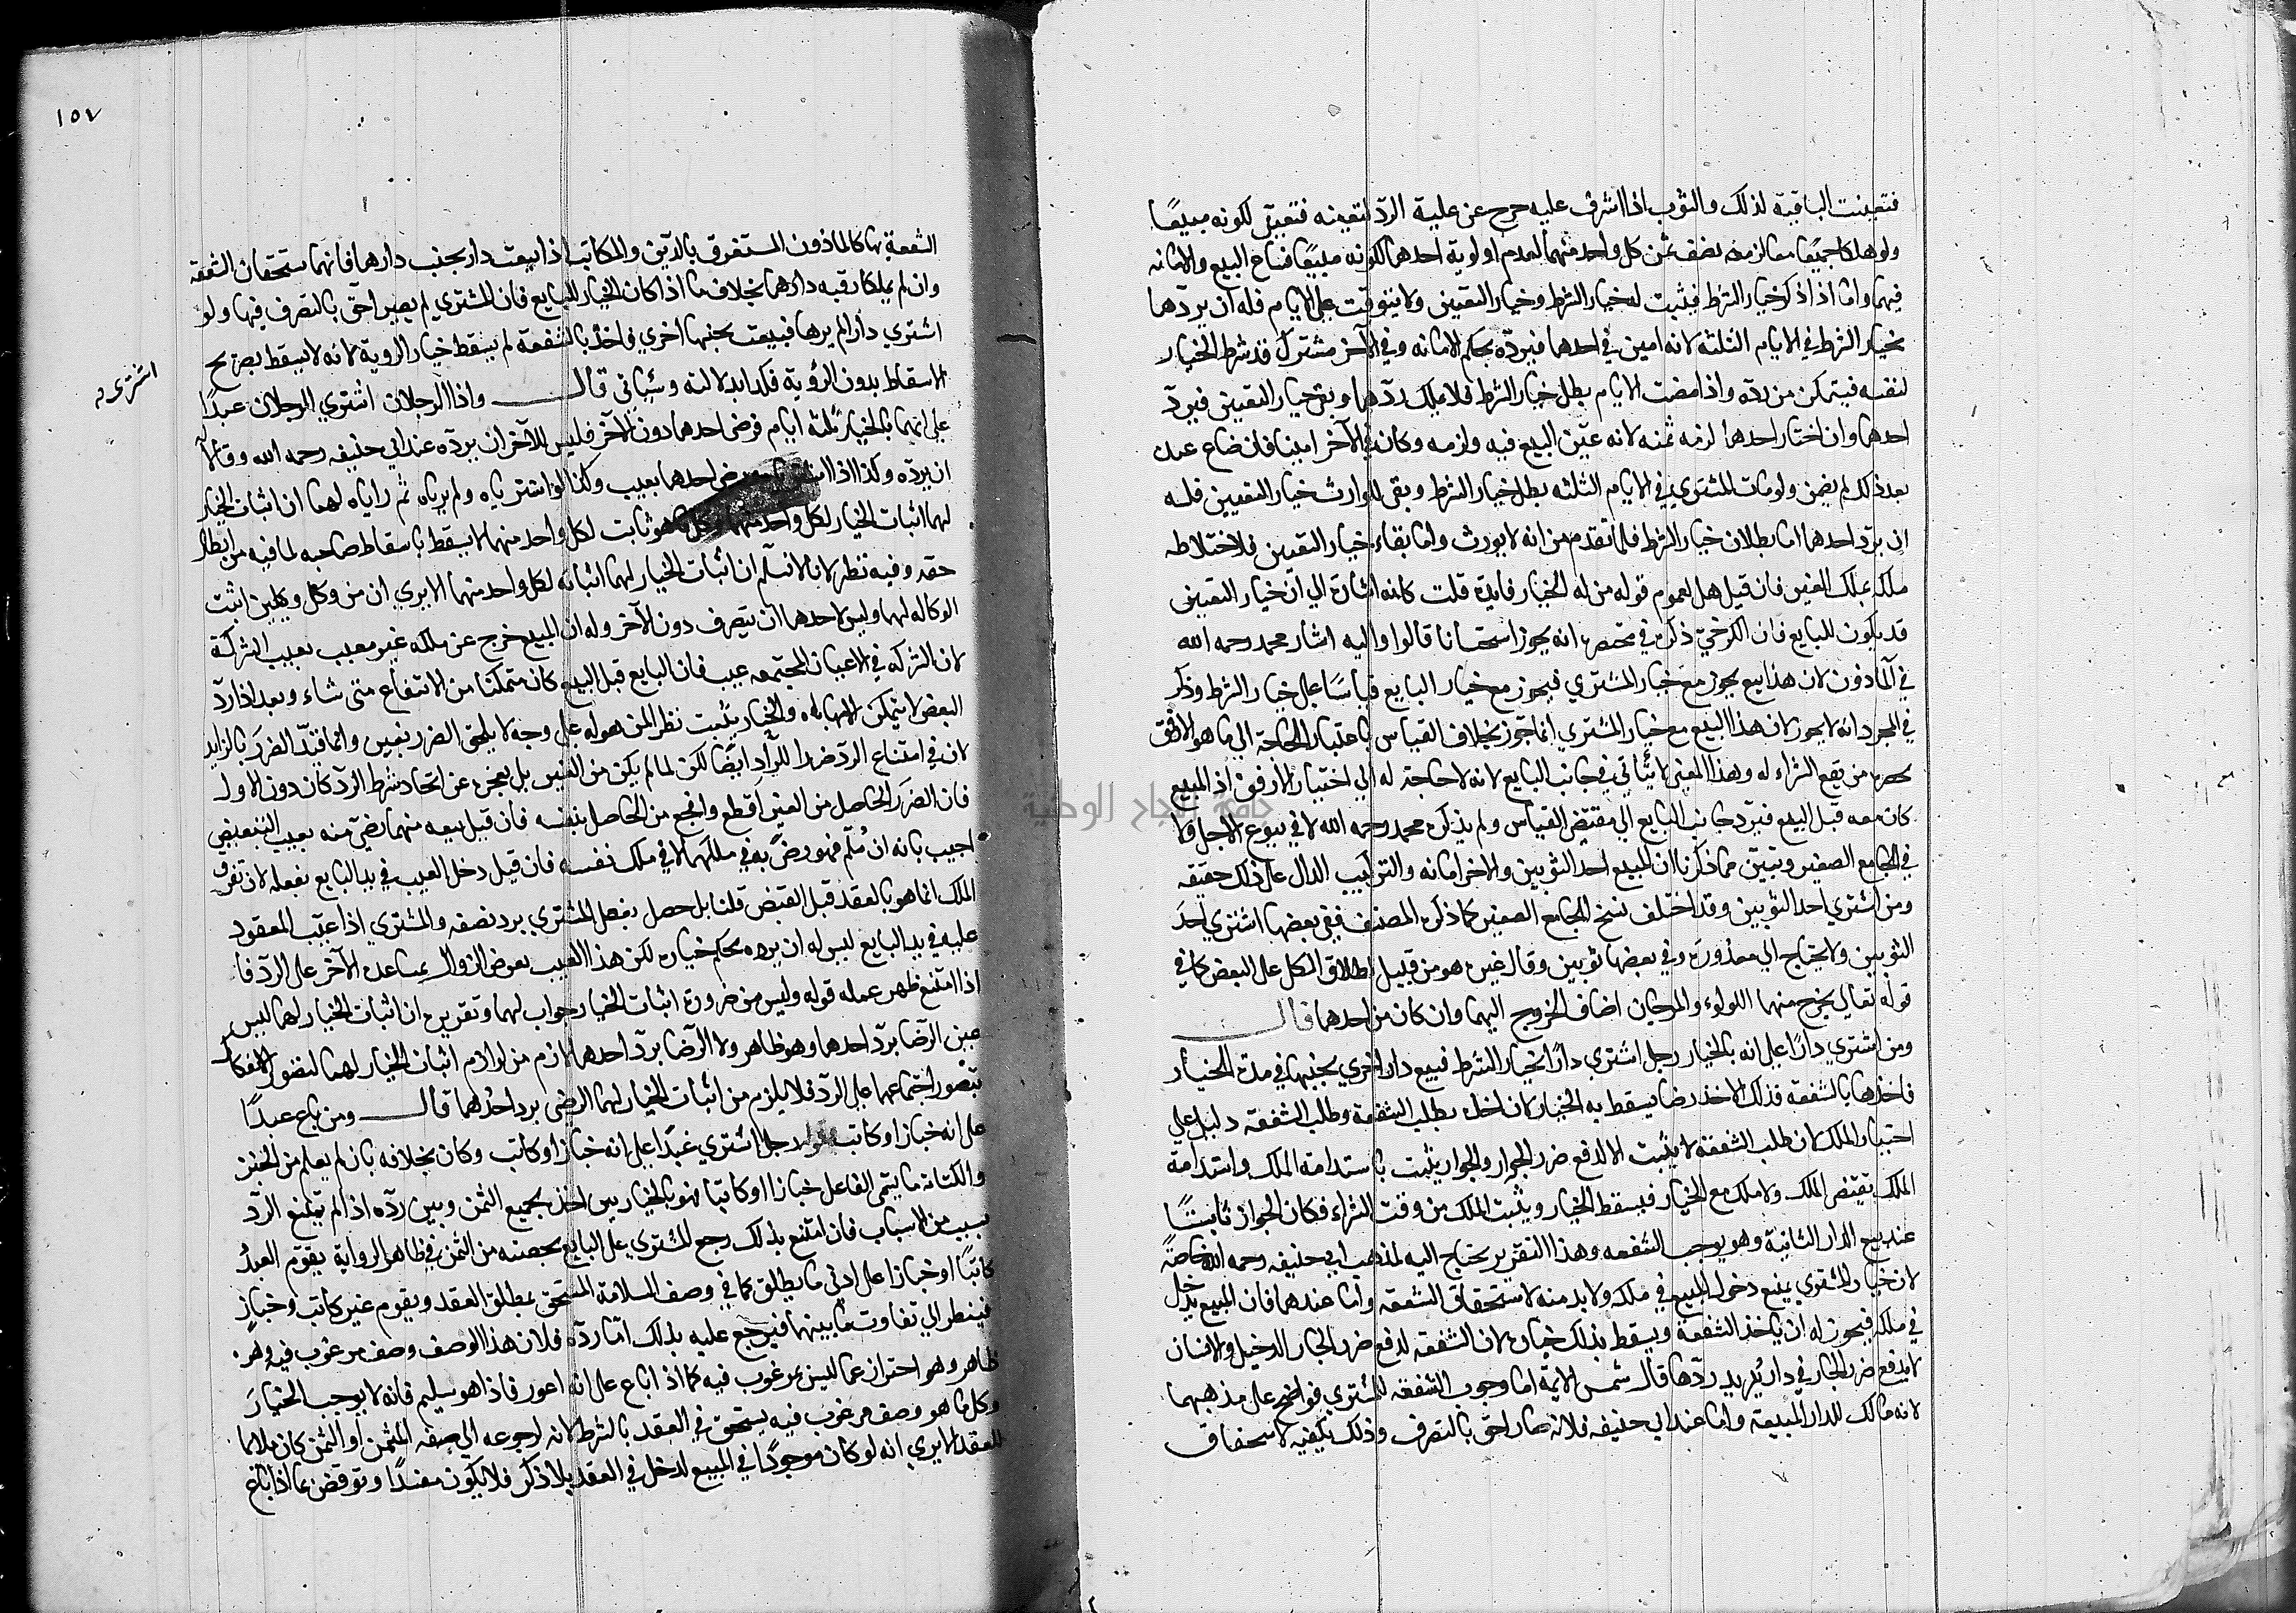 فتعينت الباقية لذلك والثوب اذا اشرف عليه خرج عن علية الرد لتعينه فتعين لكونه مبيعًا
ولو هلكا جميعًا معا لزمه نصف ثمن كل واحد منهما لعدم اولوية احدهما لكونه مبيعًا فشاع البيع والامانه
فيهما واما اذا ذكر خيار الشرط فيثبت له خيار الشرط وخيار التعيين ولا يتوقت على الايام فله ان يردها
بخيار الشرط في الايام الثلثه لانه امين في احدهما فيرده بحكم الامانه وفي الآخر مشترك قد شرط الخيار
لنفسه فيتمكن من رده واذا مضت الايام بطل خيار الشرط فلا يملك ردهما وبقى خيار التعيين فيرد
احدهما وان اختار احدهما لزمه ثمنه لانه عين البيع فيه ولزمه وكان في الآخر امينا فان ضاع عنده
بعد ذلك لم يضمن ولو مات المشتري في الايام الثلثه بطل خيار الشرط وبقى للوارث خيار التعيين فله
ان يرد احدهما اما بطلان خيار الشرط فلما تقدم من انه لا يورث واما بقاء خيار التعيين فلاختلاطه
ملكه بملك الغير فان قيل هل لعموم قوله من له الخيار فايدة قلت كانه اشارة الي ان خيار التعيين
قد يكون للبايع فان الكرخي ذكر في مختصره انه يجوز استحسانا قالوا واليه اشار محمد رحمه الله
في المأذون لان هذا بيع يجوز مع خيار المشتري فيجوز مع خيار البايع قياسًا على خيار الشرط وذكر
في المجرد انه لا يجوز لان هذا البيع مع خيار المشتري انما جوز بخلاف القياس باعتبار الحاجة الي ما هو الارفق
بحضره من يقع الشراء له وهذا المعنى لا يتأتي في جانب البايع لانه لا حاجة له الي اختيار الارفق اذ المبيع
كان معه قبل البيع فيرد جانب البايع الي مقتضى القياس ولم يذكره محمد رحمه الله لا في بيوع الاصل ولا
في الجامع الصغير وتبين مما ذكرنا ان المبيع احد الثوبين والاخر امانه والتركيب الدال على ذلك حقيقه
ومن اشتري احد الثوبين وقد اختلف نسخ الجامع الصغير كما ذكره المصنف ففي بعضها اشتري احد
الثوبين ولا يحتاج الي معذورة وفي بعضها ثوبين وقال غيره هو من قبيل اطلاق الكل على البعض كما في
قوله تعالي يخرج منهما اللولوء والمرجان اضاف الخروج اليهما وان كان من احدهما قال
ومن اشتري دارًا على انه بالخيار رجل اشتري دارًا بخيار الشرط فبيع دار اخري بجنبها في مدة الخيار
فاخذها بالشفعة فذلك الاخذ رضا يسقط به الخيار لان اخذه بطلب الشفعة وطلب الشفعة دليل علي
اختيار الملك لان طلب الشفعة لا يثبت الا لدفع ضرر الجوار والجوار يثبت باستدامة الملك واستدامة
الملك تقتضي الملك ولا ملك مع الخيار فيسقط الخيار ويثبت الملك من وقت الشراء فكان الجوار ثابتًا
عند بيع الدار الثانية وهو يوجب الشفعه وهذا التقرير يحتاج اليه لمذهب ابي حنيفه رحمه الله خاصة
لان خيار المشتري يمنع دخول المبيع في ملكه ولا بد منه لاستحقاق الشفعه واما عندهما فان المبيع يدخل
في ملكه فيجوز له ان ياخذ الشفعة ويسقط بذلك خياره لان الشفعه لدفع ضرر الجار الدخيل والانسان
لا يدفع ضرر الجار في دار يريد ردها قال شمس الايمة اما وجوب الشفعه للمشتري فواضح على مذهبهما
لانه مالك للدار المبيعة واما عند ابي حنيفه فلانه صار احق بالتصرف وذلك يكفيه لاستحقاق
١٥٧
الشفعة بها كالماذون المستغرق بالدين والمكاتب اذا بيعت دار بجنب دارهما فانهما يستحقان الشفعه
وان لم يملكا رقبه دارهما بخلاف ما اذا كان الخيار للبايع فان المشتري لم يصر احق بالتصرف فيها ولو
اشتري دارا لم يرها فبيعت بجنبها اخري فاخذ بالشفعة لم يسقط خيار الروية لانه لا يسقط بصريح
الاسقاط بدون الرؤية فكذا بدلالته وسياتى قال واذا الرجلان اشتري الرجلان عبدًا
اشتري
على انهما بالخيار ثلثه ايام فرضى احدهما دون الآخر فليس للآخر ان يرده عند ابي حنيفه رحمه الله وقالا له
ان يرده وكذا اذا اشتريا ورضى احدهما بعيب وكذا لو اشترياه ولم يرياه ثم راياه لهما ان اثبات الخيار
لهما اثبات الخيار لكل واحد منهما وكل ما هو ثابت لكل واحد منهما لا يسقط باسقاط صاحبه لما فيه من ابطال
حقه وفيه نظر لانا لا نسلم ان اثبات الخيار لهما اثباته لكل واحد منهما الا يري ان من وكل وكيلين اثبت
الوكاله لهما وليس لاحدهما ان يتصرف دون الآخر وله ان المبيع خرج عن ملكه غير معيب بعيب الشركة
لان الشركه في الاعيان المجتمعه عيب فان البايع قبل البيع كان متمكنا من الانتفاع متى شاء وبعد اذا رد
البعض لا يتمكن الا مهاياه والخيار يثبت نظرا لمن هو له على وجه لا يلحق الضرر بغيره وانما قيد الضرر بالزايد
لان في امتناع الرد ضررا للراد ايضًا لكن لما لم يكن من الغير بل بعجزه عن اتحاد شرط الرد كان دون الاول
فان الضرر الحاصل من الغير اقطع وافجع من الحاصل بنفسه فان قيل بيعه منهما رضى منه بعيب التبعيض
اجيب بانه ان سلم فهو رضى به في ملكهما لا في ملك نفسه فان قيل دخل العيب في يد البايع بفعله لان تفرق
الملك انما هو بالعقد قبل القبض قلنا بل حصل بفعل المشتري برد نصفه والمشتري اذا عيب المعقود
عليه في يد البايع ليس له ان يرده بحكم خياره لكن هذا العيب بعرض الزوال بمساعدة الآخر على الرد فا
اذا امتنع ظهر عمله قوله وليس من ضرورة اثبات الخيار جواب لهما وتقريره ان اثبات الخيار لهما ليس
عين الرضا برد احدهما وهو ظاهر ولا الرضا برد احدهما لازم من لوازم اثبات الخيار لهما لتصور الانفكاك
بتصور اجتماعهما على الرد فلا يلزم من اثبات الخيار لهما الرضى برد احدهما قال ومن باع عبدًا
على انه خباز او كاتب رجل اشتري عبدًا على انه خباز او كاتب وكان بخلافه بان لم يعلم من الخبز
والكتابة ما يسمى الفاعل خبازا او كاتبا فهو بالخيار بين اخذه بجميع الثمن وبين رده اذا لم يمتنع الرد
بسبب من الاسباب فان امتنع بذلك رجع المشتري على البايع بحصته من الثمن في ظاهر الرواية يقوم العبد
كاتبًا او خبازا على ادنى ما يطلق كما في وصف السلامة المستحق بمطلق العقد ويقوم غير كاتب وخباز
فينظر الي تفاوت ما بينهما فيرجع عليه بذلك اما رده فلان هذا الوصف وصف مرغوب فيه وهو
ظاهر وهو احتراز عما ليس بمرغوب فيه كما اذا باع على انه اعور فاذا هو سليم فانه لا يوجب الخيار
وكل ما هو وصف مرغوب فيه يستحق في العقد بالشرط لانه لرجوعه الي صفه المثمن او الثمن كان ملائما
للعقد الا يري انه لو كان موجودًا في المبيع لدخل في العقد بلا ذكر فلا يكون مفسدًا ونوقض بما اذا باع
جامعة النجاح الوطنية